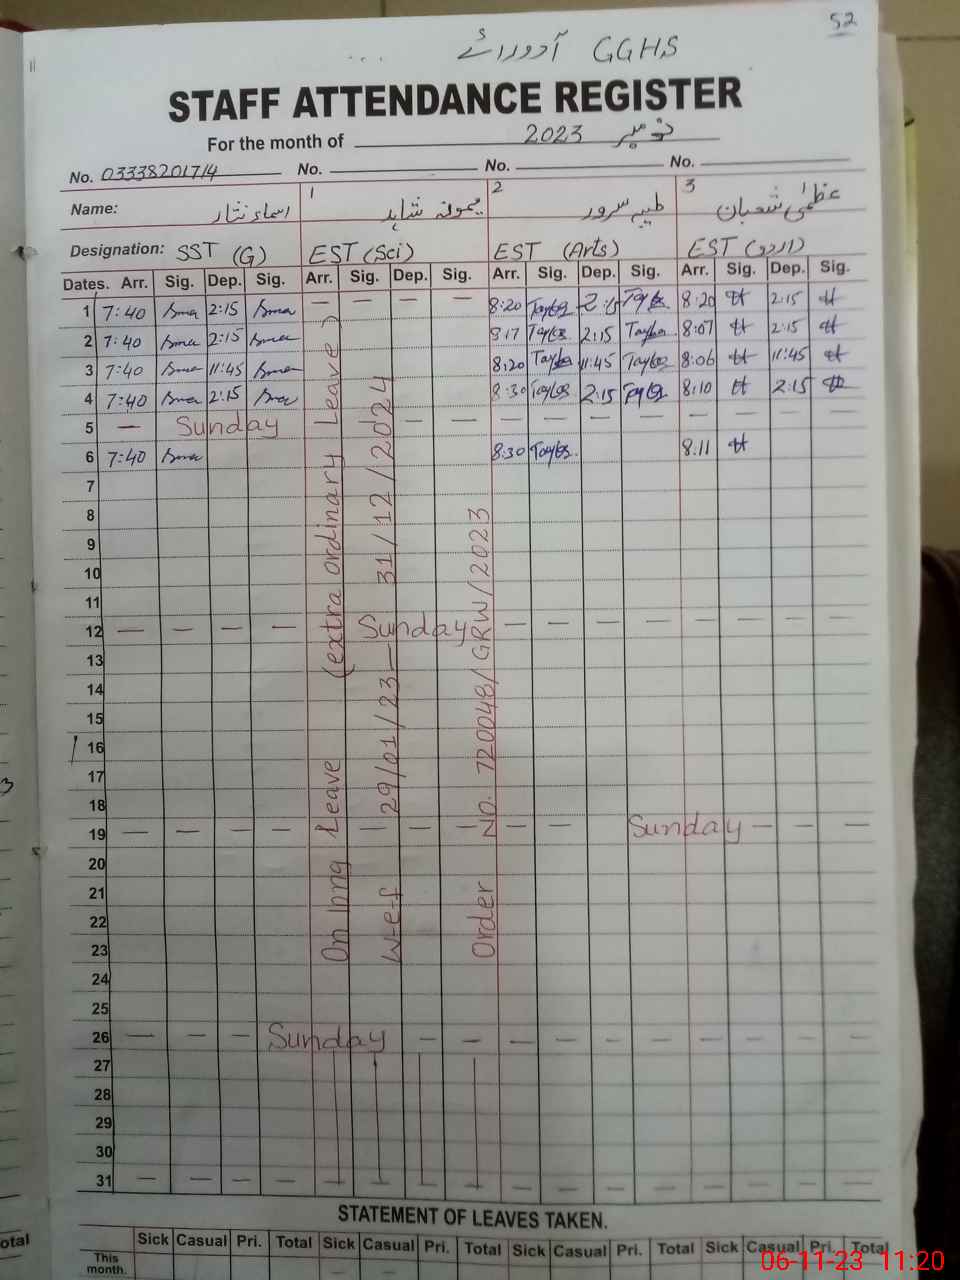 52
GGHS آدورائے
STAFF ATTENDANCE REGISTER
For the month of نومبر 2023
No. 03338201714 No. No. No.
1 2 3
Name: اسماء نثار میمونہ شاہد طیبہ سرور عظمیٰ شعبان
Designation: SST (G) EST (Sci) EST (Arts) EST (اردو)
Dates. Arr. Sig. Dep. Sig. Arr. Sig. Dep. Sig. Arr. Sig. Dep. Sig. Arr. Sig. Dep. Sig.
1 7:40 2:15 — — — — 8:20 2:15 8:20 2:15
2 7:40 2:15 8:17 2:15 8:07 2:15
3 7:40 11:45 8:20 11:45 8:06 11:45
4 7:40 2:15 8:30 2:15 8:10 2:15
5 — Sunday — — — — — — — —
6 7:40 8:30 8.11
7
8
9
10
11
12 — — — — Sunday — — — — — — — —
13
14
15
16
17
18
19 — — — — — — — — — — Sunday — — —
20
21
22
23
24
25
26 — — — Sunday — — — — — — — — — —
27
28
29
30
31 — — — — — — — — — — — — — — — —
On long leave (extra ordinary Leave)
w-e-f 29/01/23 — 31/12/2024
Order NO. 720048/GRW/2023
STATEMENT OF LEAVES TAKEN.
Sick Casual Pri. Total Sick Casual Pri. Total Sick Casual Pri. Total Sick Casual Pri. Total
This month.
otal
06-11-23 11:20